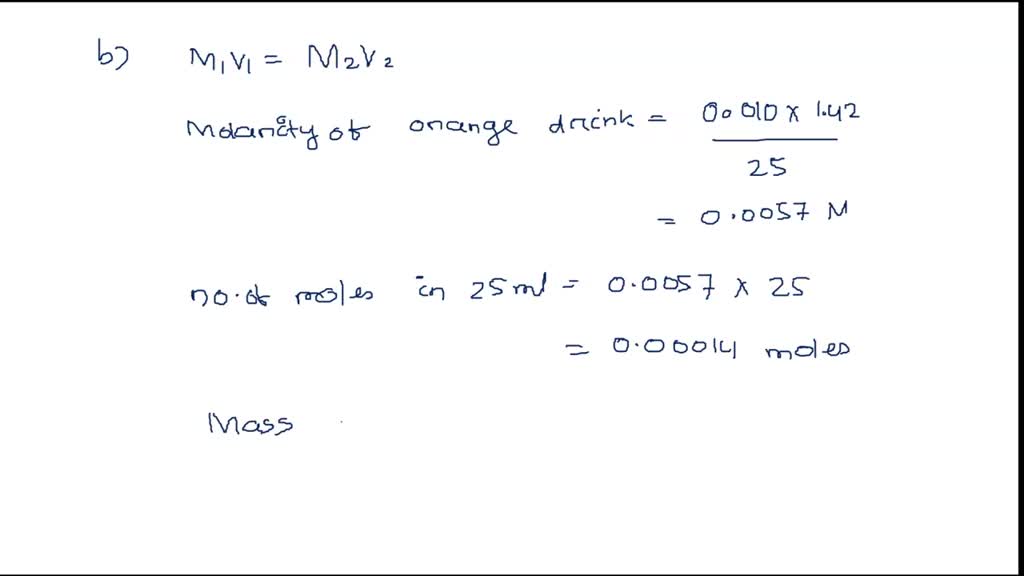 b) M₁V₁ = M₂V₂
Molarity of orange drink = 0.010 x 1.42
25
= 0.0057 M
no. of moles in 25 ml = 0.0057 x 25
= 0.00014 moles
Mass